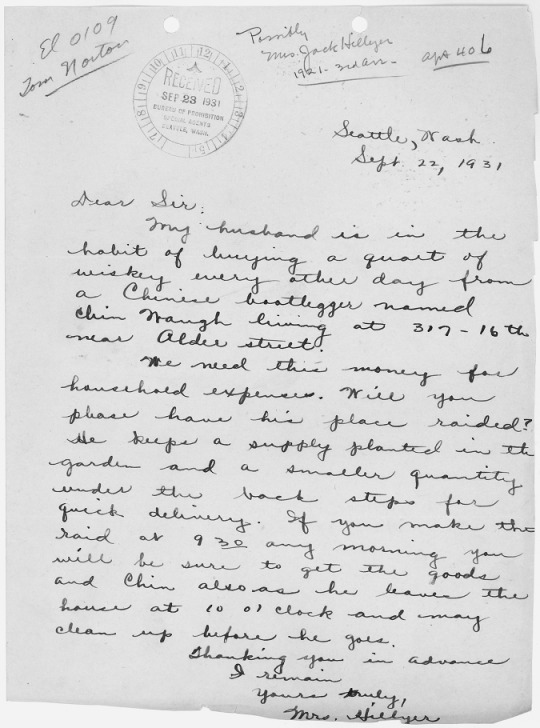 El 0109
Tom Norton
Possibly
Mrs. Jack Hillyer
1921 - 3rd Ave - Apt 406
RECEIVED
SEP 23 1931
BUREAU OF PROHIBITION
SPECIAL AGENTS
SEATTLE, WASH.
Seattle, Wash.
Sept. 22, 1931
Dear Sir:
My husband is in the
habit of buying a quart of
wiskey every other day from
a Chinese bootlegger named
Chin Waugh living at 317-16th
near Alder street.
We need this money for
household expenses. Will you
please have his place raided?
He keeps a supply planted in the
garden and a smaller quantity
under the back steps for
quick delivery. If you make the
raid at 9 30 any morning you
will be sure to get the goods
and Chin also as he leaves the
house at 10 o'clock and may
clean up before he goes.
Thanking you in advance
I remain
Yours truly,
Mrs. Hillyer